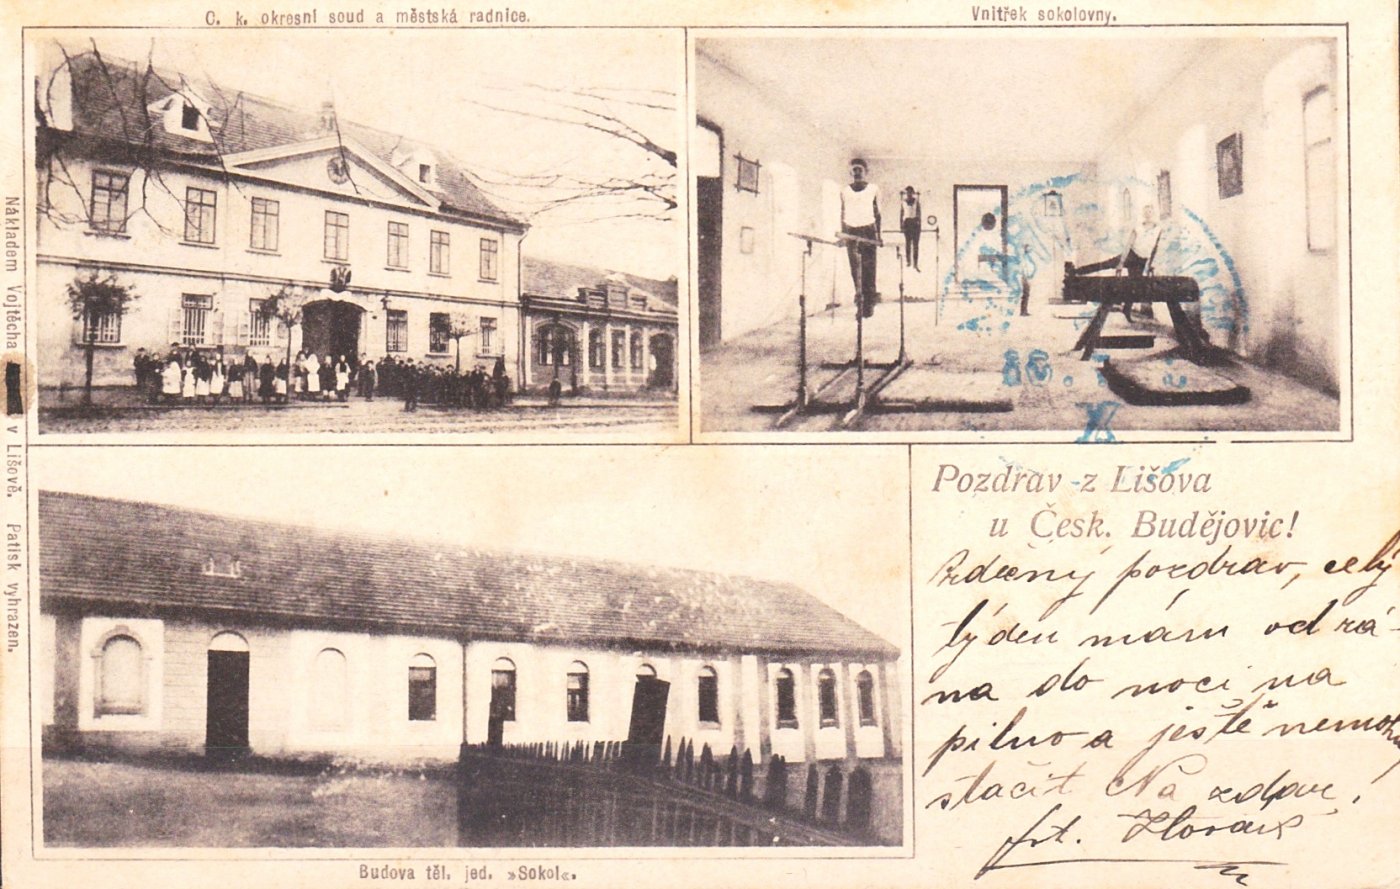 C. k. okresní soud a městská radnice.
Vnitřek sokolovny.
Nákladem Vojtěcha v Lišově. Patisk vyhrazen.
Pozdrav z Lišova
u Česk. Budějovic!
Srdečný pozdrav, celý
týden mám od rá-
na do noci na
pilno a ještě nemohu
stačit Na zdar,
frt.
Budova těl. jed. »Sokol«.